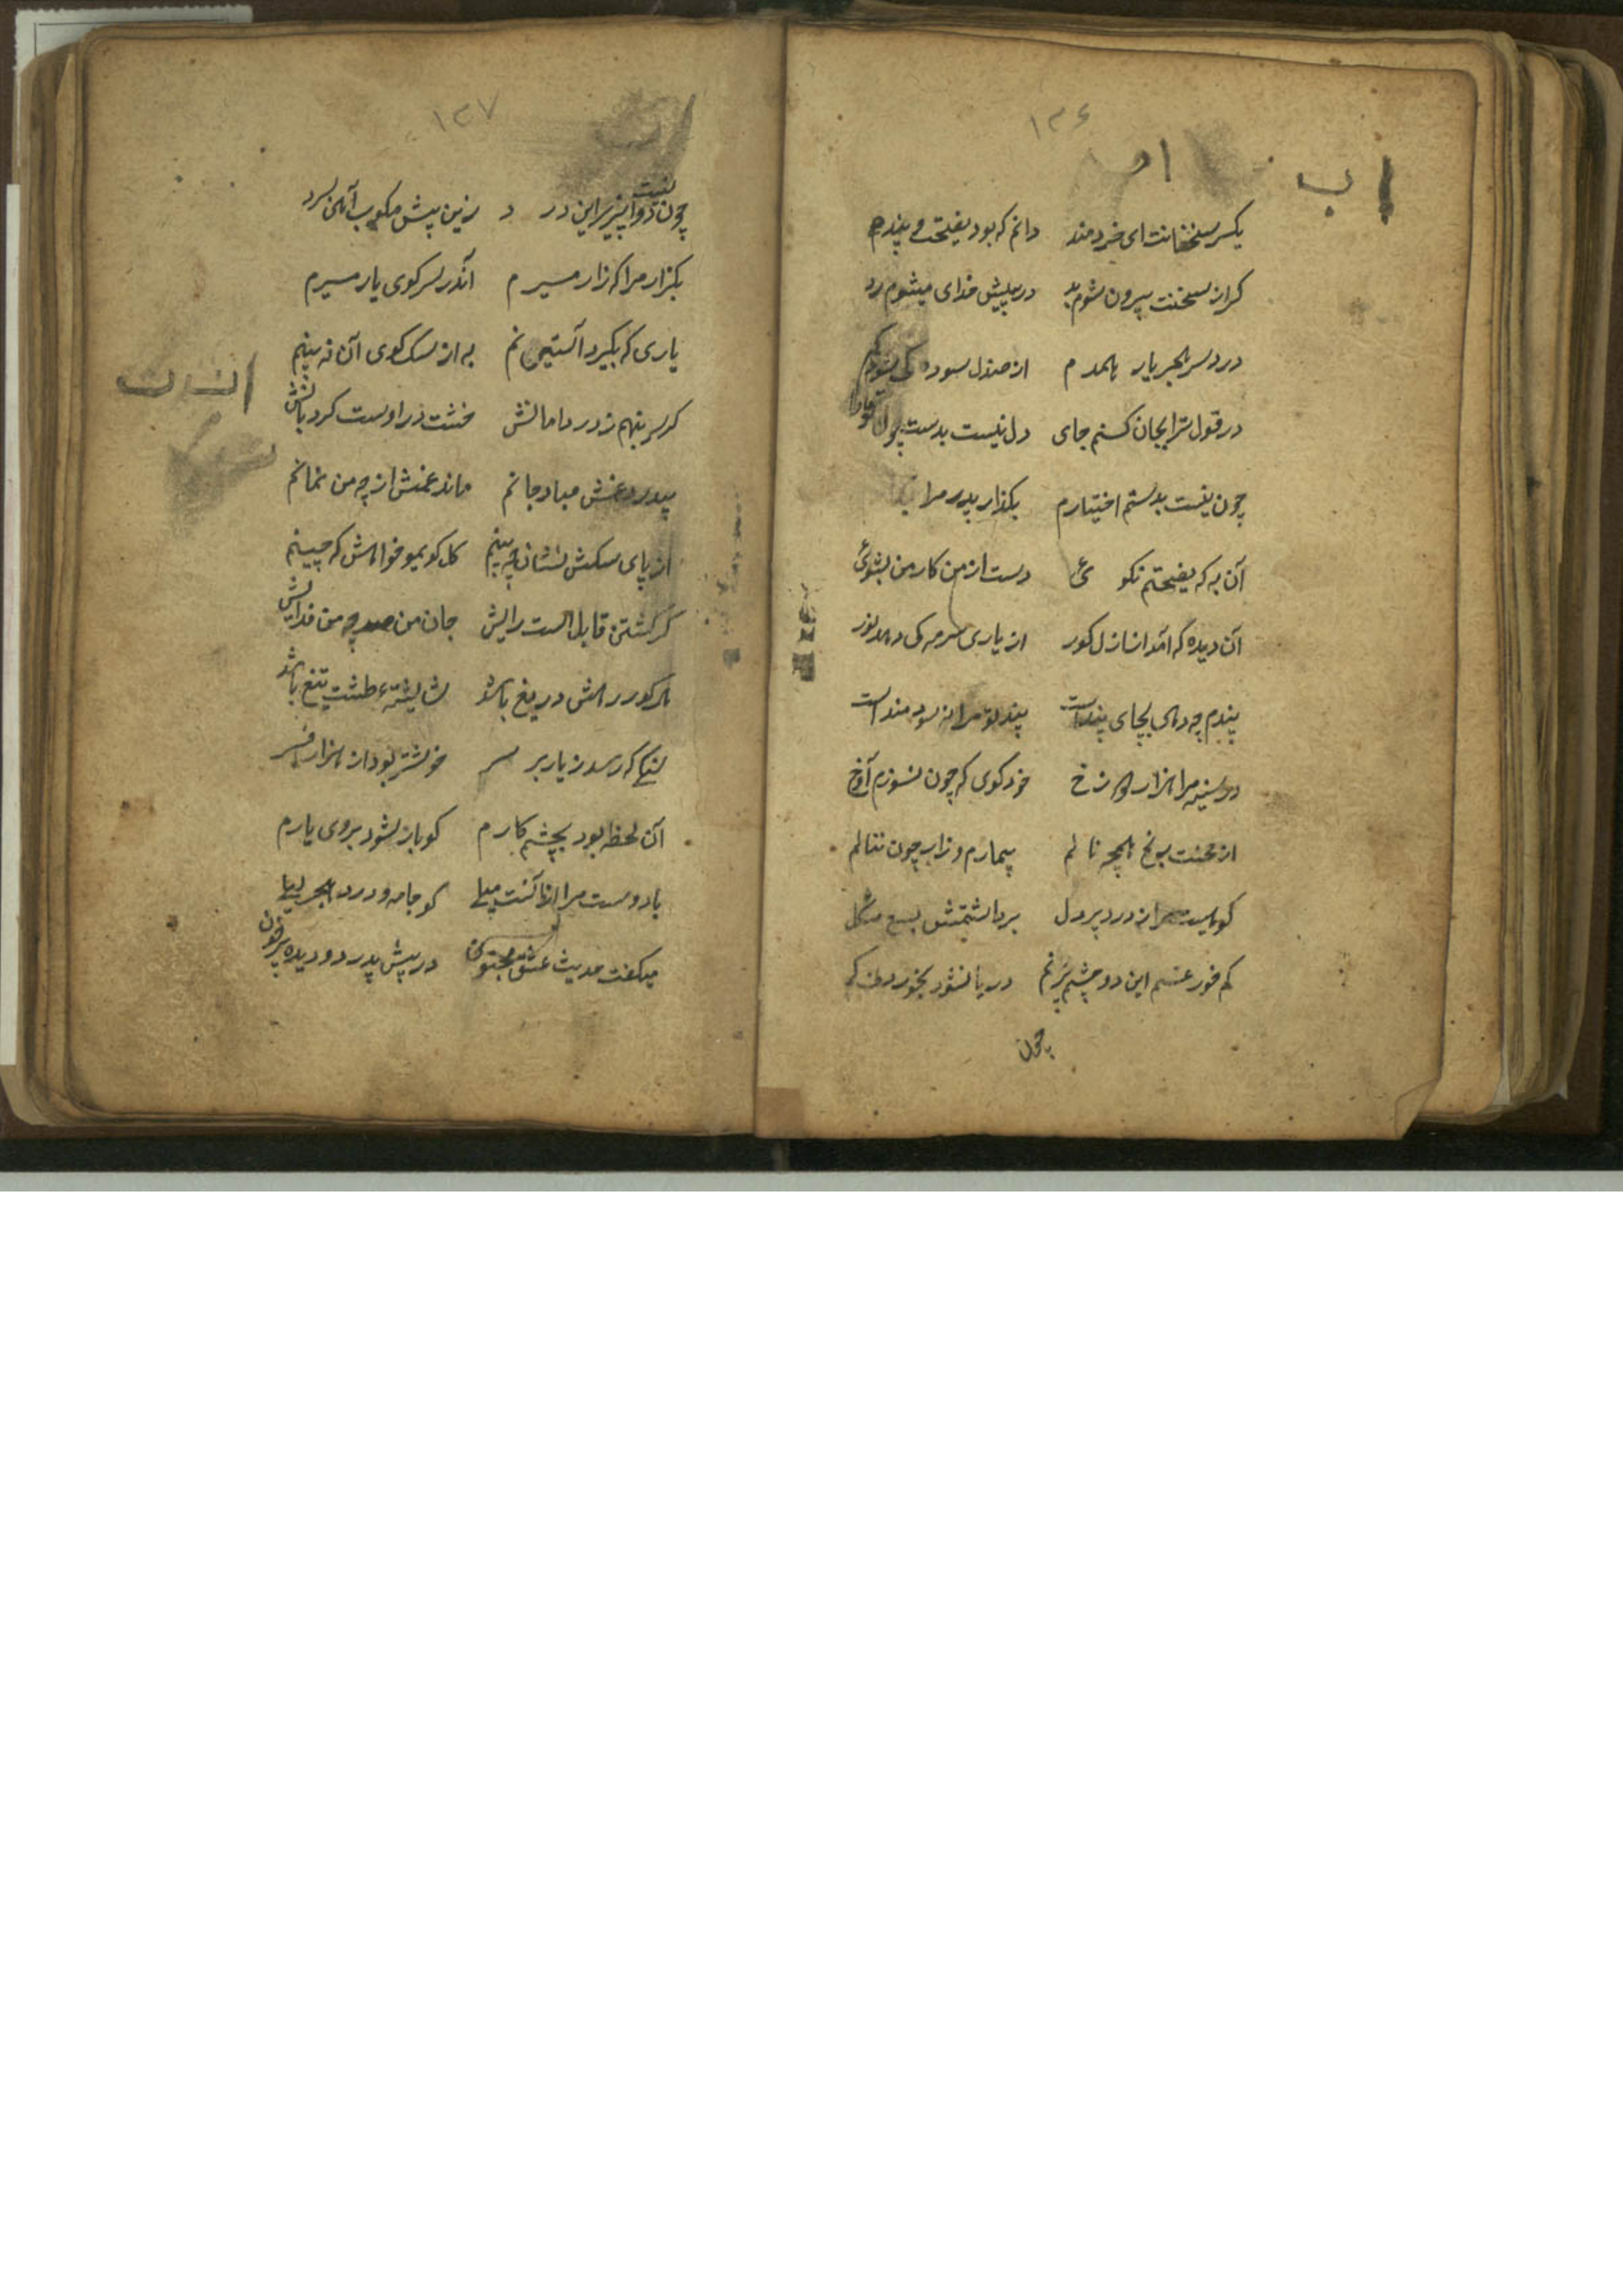 ۱۳۶
اب
یکسر سخنانت ای خردمند دانم که بود نصیحت و پندم
کر از سخنت بیرون شوم بد در پیش خدای میشوم رد
درد سر هجر یار همدم از صندل سوده کی شود کم
در قول ترا بجان کنم جای دل نیست بدست چون
چون نیست بدستم اختیارم بکذار پدر مرا
آن به که نصیحتم نکوئی دست از من کار من بشوئی
آن دیده که آمد از ازل کور از یاری سرمه کی دهد نور
پندم چه دهی بجای پندست پند تو مرا نه سودمند است
در سینه مرا هزار دوزخ خود کوی که چون نسوزم آوخ
از محنت همچه نالم بیمارم و زار چون ننالم
کوهیست مرا ز درد بر دل برداشتنش بسی مشکل
کم خور غم این دو چشم پرنم دریا نشود بخوردن کم
چون
۱۳۷
چون نیست دوا پذیر این درد زین پیش مکوب آهن سرد
بکزار مرا که زار میرم اندر سر کوی یار میرم
یاری که بکیرد آستینم به از سک کوی آن نه بینم
کر سر بنهم ز درد امانش خشت در اوست کرد بالش
بیدرد غمش مباد جانم ماند غمش ار چه من نمانم
از پای سکش نشان چه بینم کل کو بمیو خواهش که چینم
کر کشتن قابل است رایش جان من صد چه من فدایش
هر کو در رهش دریغ باشد شایسته طشت تیغ باشد
که رسد ز یار بر سر خوشتر بود از هزار افسر
آن لحظه بود بچشم کارم کو باز شود بروی یارم
با دوست مرا میلی کو جامه و درد هجر لیلی
میکفت حدیث عشق مجنون در پیش پدر دو دیده پر خون